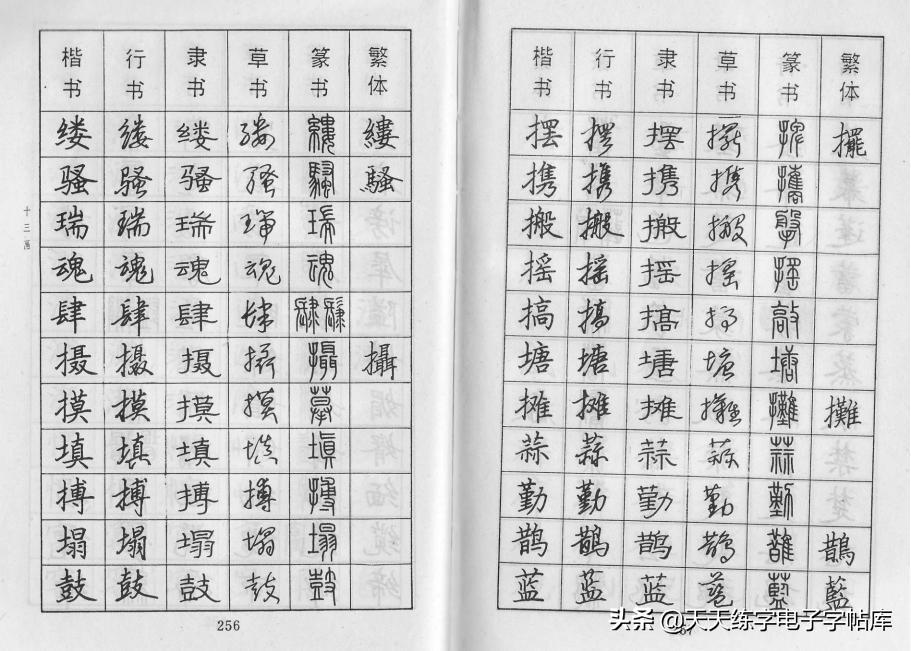 楷书 行书 隶书 草书 篆书 繁体
缕 缕 缕 缕 縷 縷
骚 骚 骚 骚 騷 騷
瑞 瑞 瑞 瑞 瑞
魂 魂 魂 魂 魂
肆 肆 肆 肆 肆肆
摄 摄 摄 摄 攝 攝
摸 摸 摸 摸 摹
填 填 填 填 填
搏 搏 搏 搏 搏
塌 塌 塌 塌 塌
鼓 鼓 鼓 鼓 鼓
十三画
256
楷书 行书 隶书 草书 篆书 繁体
摆 摆 摆 擺 擺
携 携 携 携 攜
搬 搬 搬 搬
摇 摇 摇 摇 搖
搞 搞 搞 搞 敲
塘 塘 塘 塘
摊 摊 摊 攤 攤 攤
蒜 蒜 蒜 蒜 蒜
勤 勤 勤 勤 勤
鹊 鹊 鹊 鵲 鵲
蓝 蓝 蓝 蓝 藍 藍
头条 @天天练字电子字帖库